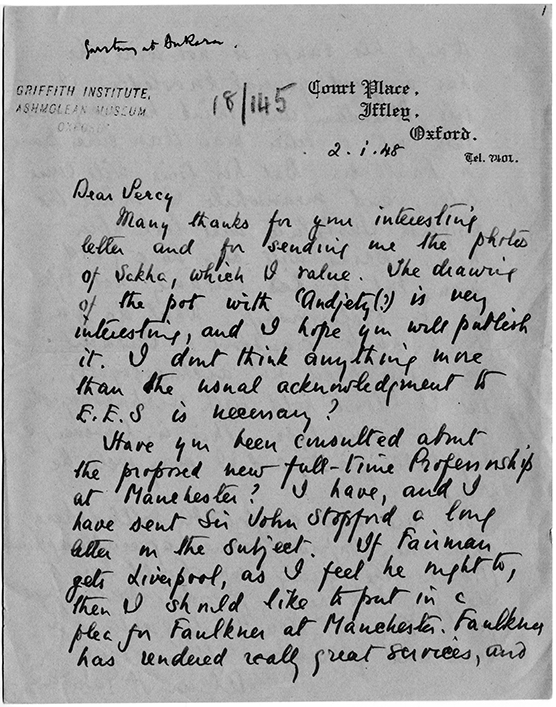 1
Garstang at Ankara.
GRIFFITH INSTITUTE,
ASHMOLEAN MUSEUM
OXFORD
18/145
Court Place,
Iffley,
Oxford.
Tel. 7401.
2.1.48
Dear Percy
Many thanks for your interesting
letter and for sending me the photos
of Sakha, which I value. The drawing
of the pot with 'Andjety(?) is very
interesting, and I hope you will publish
it. I dont think anything more
than the usual acknowledgment to
E.E.S is necessary?
Have you been consulted about
the proposed new full-time Professorship
at Manchester? I have, and I
have sent Sir John Stopford a long
letter on the subject. If Fairman
gets Liverpool, as I feel he ought to,
then I should like to put in a
plea for Faulkner at Manchester. Faulkner
has rendered really great services, and